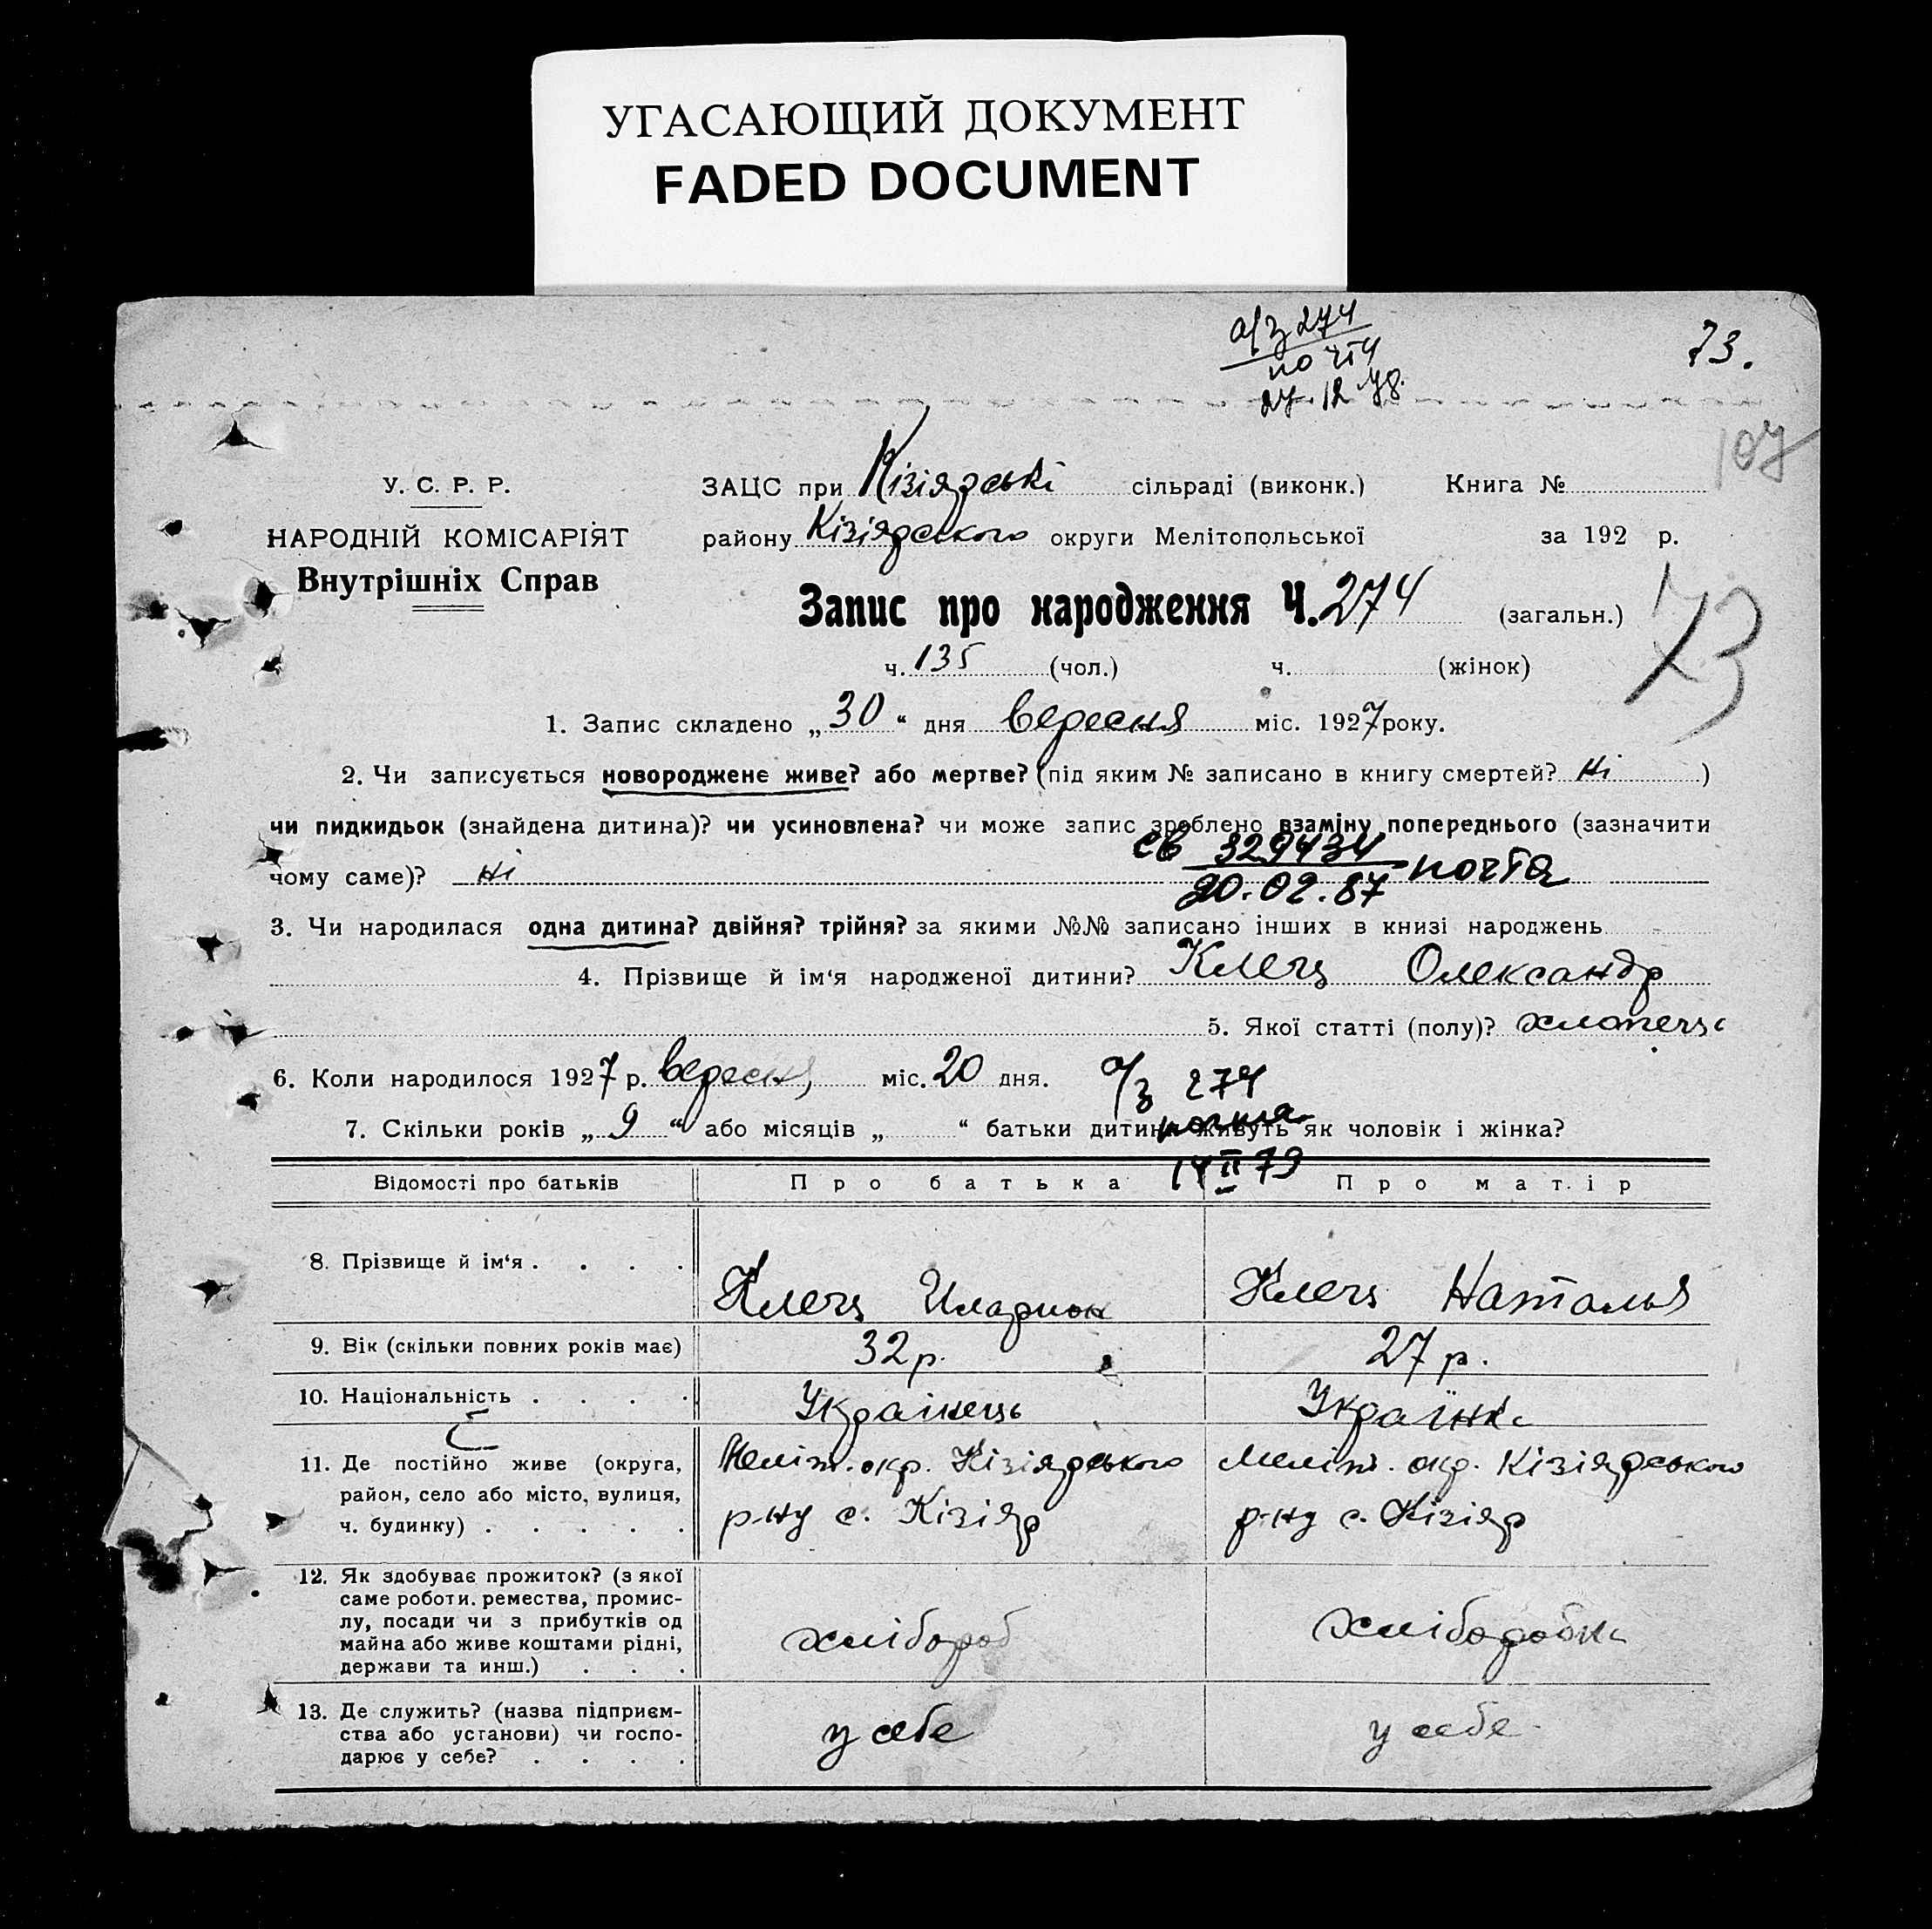 УГАСАЮЩИЙ ДОКУМЕНТ
FADED DOCUMENT
а/з 274
почт
27.12 78.
73.
107
У. С. Р. Р.
НАРОДНІЙ КОМІСАРІЯТ
Внутрішніх Справ
ЗАЦС при Кізіярські сільраді (виконк.) Книга №
району Кізіярського округи Мелітопольської за 192 р.
Запис про народження Ч. 274 (загальн.)
73
ч. 135 (чол.) ч. (жінок)
1. Запис складено „30“ дня вересня міс. 1927 року.
2. Чи записується новороджене живе? або мертве? (під яким № записано в книгу смертей? ні )
чи пидкидьок (знайдена дитина)? чи усиновлена? чи може запис зроблено взаміну попереднього (зазначити
чому саме)? ні
св 329434 почта
20.02.87
3. Чи народилася одна дитина? двійня? трійня? за якими №№ записано інших в книзі народжень
4. Прізвище й ім‘я народженої дитини? Клец Олександр
5. Якої статті (полу)? хлопець
6. Коли народилося 1927 р. вересня міс. 20 дня.
а/з 274
почта
14 II 79
7. Скільки років „9“ або місяців „ “ батьки дитини живуть як чоловік і жінка?
Відомості про батьків Про батька Про матір
8. Прізвище й ім‘я . . . . Клец Иларион Клец Наталья
9. Вік (скільки повних років має) 32 р. 27 р.
10. Національність . . . . Українець Українка
11. Де постійно живе (округа, район, село або місто, вулиця, ч. будинку) . . . . . Меліт. окр. Кізіярського р-ну с. Кізіяр Меліт. окр. Кізіярського р-ну с. Кізіяр
12. Як здобуває прожиток? (з якої саме роботи. ремества, промислу, посади чи з прибутків од майна або живе коштами рідні, держави та инш.) . . . хлібороб хліборобка
13. Де служить? (назва підприємства або установи) чи господарює у себе? . . . . у себе у себе